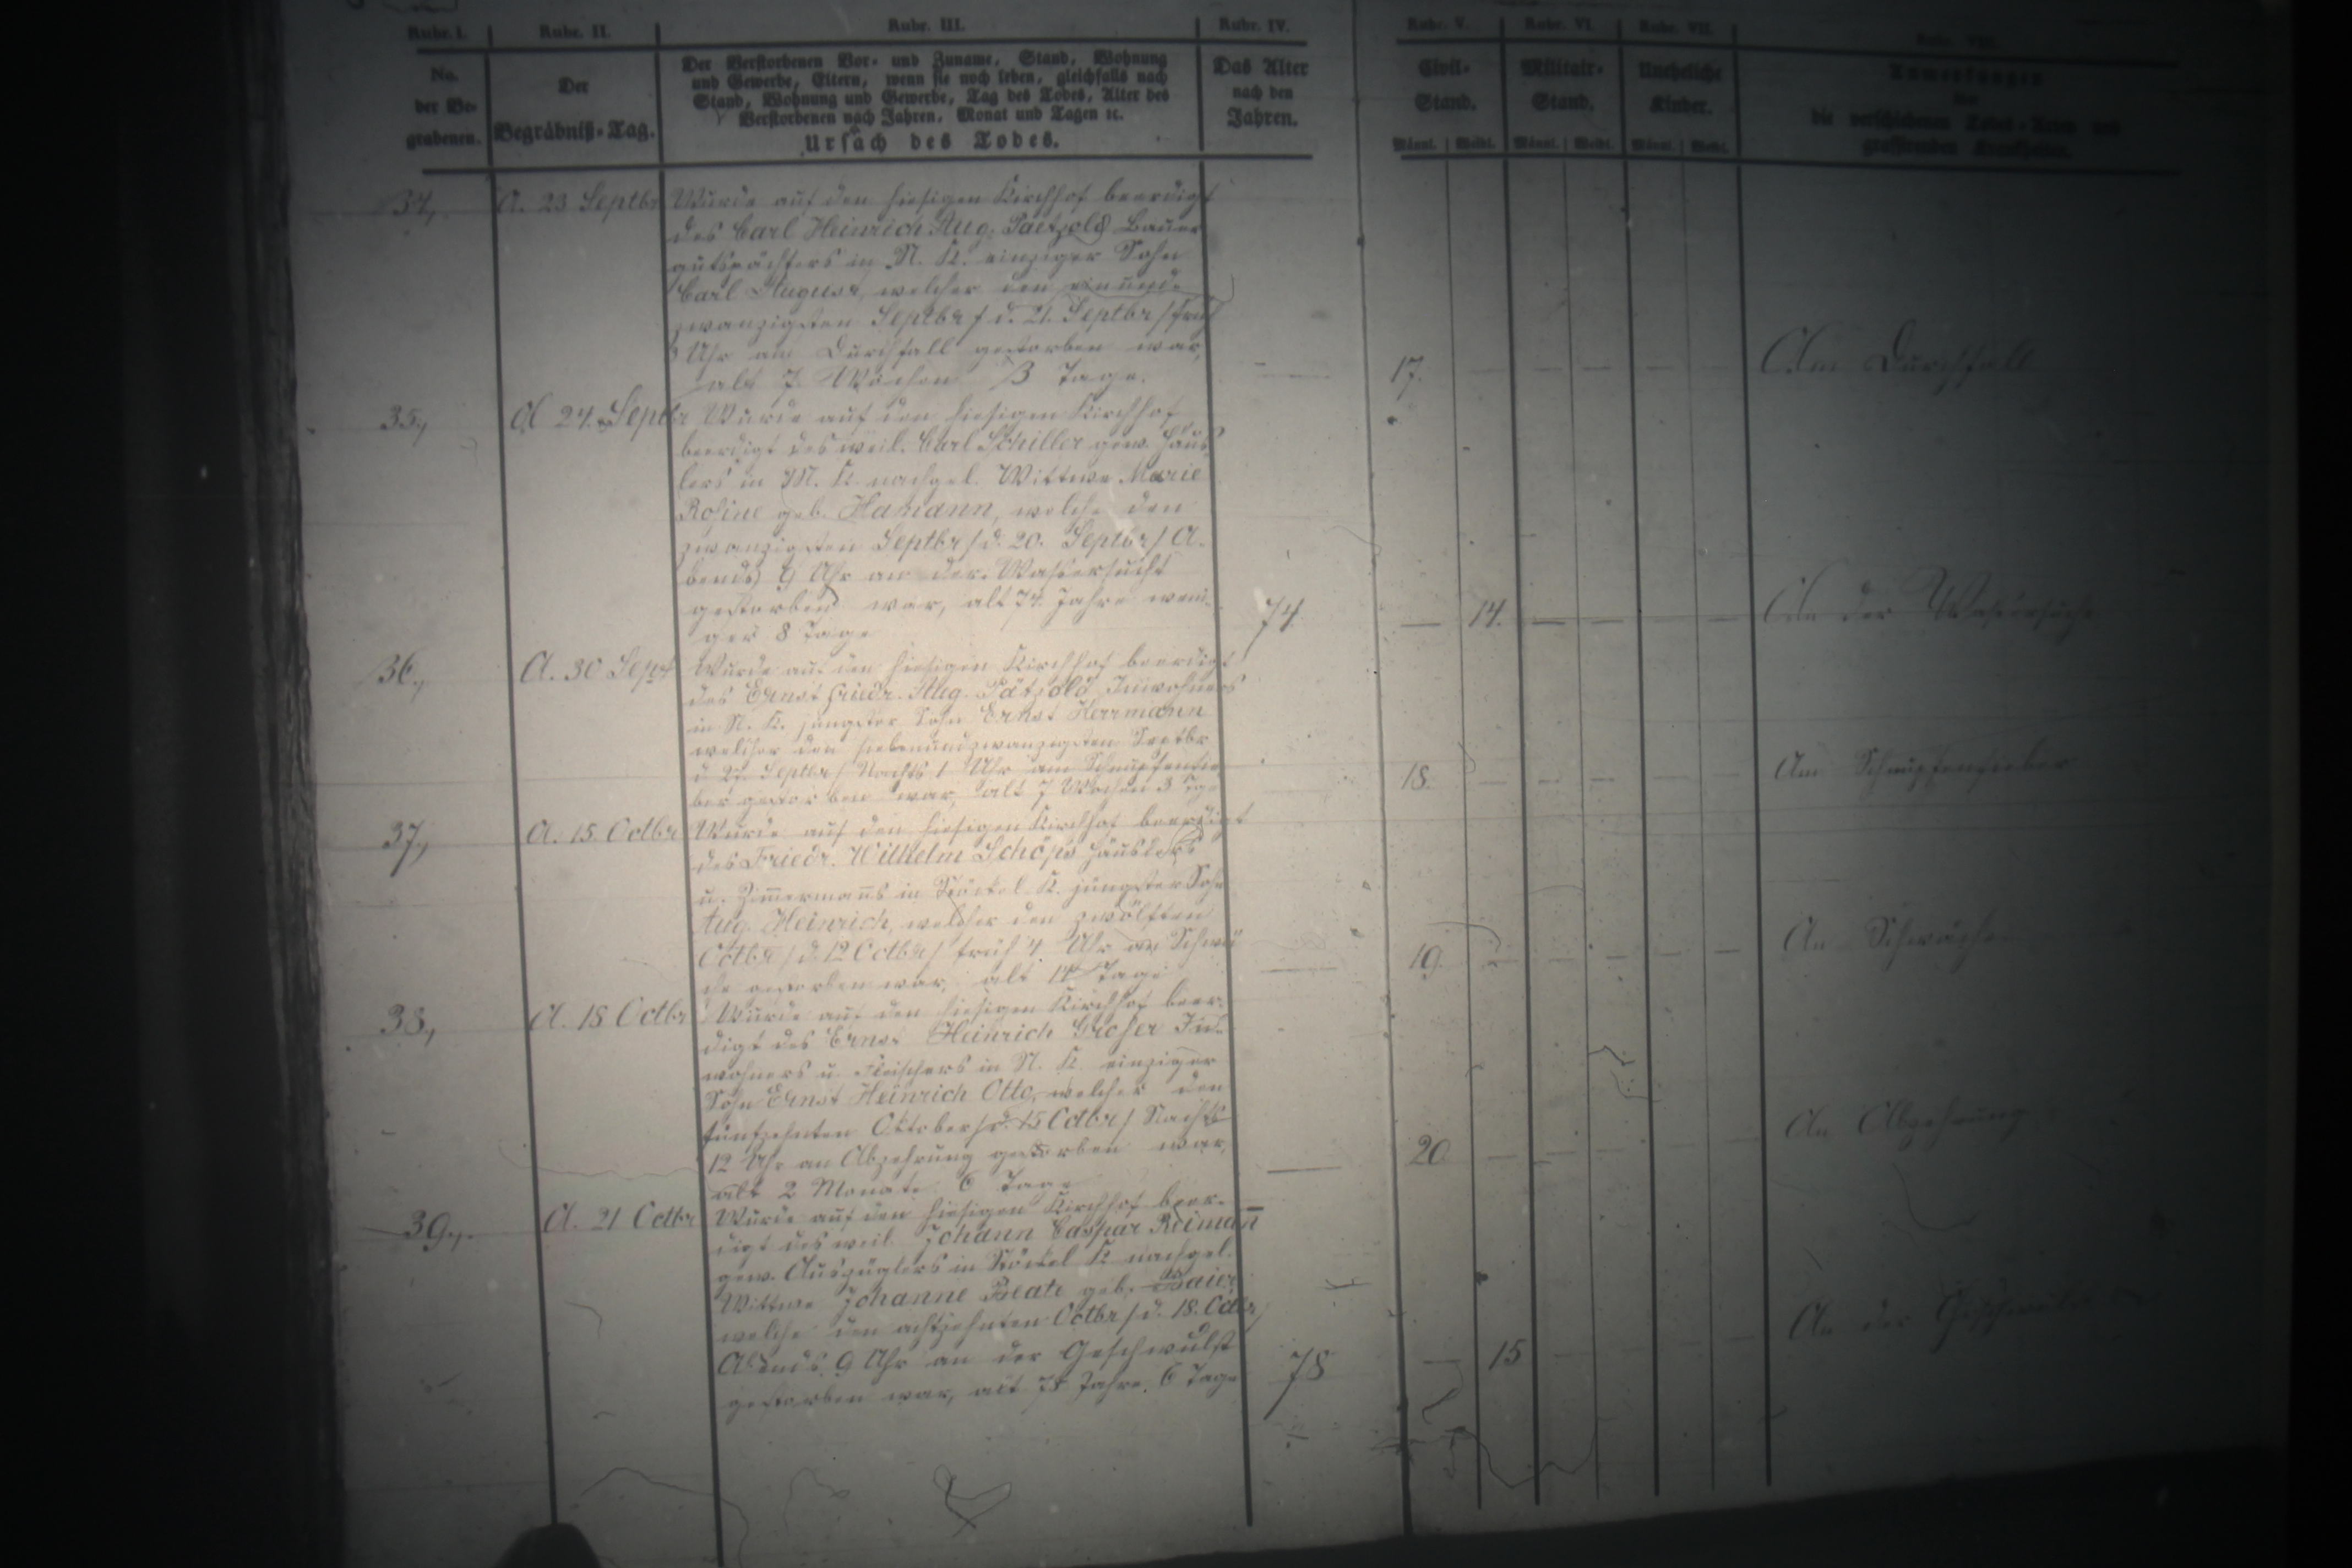 Rubr. I. Rubr. II. Rubr. III. Rubr. IV. Rubr. V. Rubr. VI. Rubr. VII.
No. der Be-grabenen.
Der Begräbniß-Tag.
Der Verstorbenen Vor- und Zuname, Stand, Wohnung
und Gewerbe, Eltern, wenn sie noch leben, gleichfalls nach
Stand, Wohnung und Gewerbe, Tag des Todes, Alter des
Verstorbenen nach Jahren, Monat und Tagen ꝛc.
Ursach des Todes.
Das Alter
nach den
Jahren.
Civil-
Stand.
Militair-
Stand.
Uneheliche
Kinder.
Anmerkungen
die verschiedenen Todes-Arten und
grassirenden Krankheiten.
Männl. Weibl. Männl. Weibl. Männl. Weibl.
34., A. 23 Septbr Wurde auf den hiesigen Kirchhof beerdigt
des Carl Heinrich Aug. Paetzold Bauer
gutspächters in N. K. einziger Sohn
Carl August, welcher den einund-
zwanzigsten Septbr / d. 21. Septbr / früh
3 Uhr am Durchfall gestorben war,
alt 7 Wochen 3 Tage. — 17. Am Durchfall
35., A 24. Septbr Wurde auf den hiesigen Kirchhof
beerdigt des weil. Carl Schiller gew. Häus
lers in M. K. nachgel. Wittwe Marie
Rosine geb. Hamann, welche den
zwanzigsten Septbr / d. 20. Septbr / A.
bends 9 Uhr an der Wassersucht
gestorben war, alt 74 Jahre weni- 74 — 14. An der Wassersucht
ger 8 Tage
36., A. 30 Sept Wurde auf den hiesigen Kirchhof beerdigt
des Ernst Friedr. Aug. Pätzold Inwohners
in N. K. jüngster Sohn Ernst Herrmann
welcher den siebenundzwanzigsten Septbr
d. 27. Septbr / Nachts 1 Uhr am Schnupfenfie
ber gestorben war, alt 7 Wochen 3 Tge 18. Am Schnupfenfieber
37., A. 15. Octbr Wurde auf den hiesigen Kirchhof beerdigt
des Friedr. Wilhelm Schöps Häuslers
u. Zimermans in Stöckel K. jüngster Sohn
Aug. Heinrich, welcher den zwölften
Octbr / d. 12 Octbr / früh 4 Uhr an Schwä
che gestorben war, alt 14 Tage — 19. An Schwäche
38., A. 18 Octbr Wurde auf den hiesigen Kirchhof beer-
digt des Ernst Heinrich Groser In-
wohners u. Fleischers in N. K. einziger
Sohn Ernst Heinrich Otto, welcher den
fünfzehnten Oktober / d. 15 Octbr / Nachts
12 Uhr an Abzehrung gestorben war, — 20 An Abzehrung
alt 2 Monate 6 Tage
39., A. 21 Octbr Wurde auf den hiesigen Kirchhof beer-
digt des weil. Johann Caspar Reiman̄
gew. Auszüglers in Stöckel K nachgel.
Wittwe Johanne Beate geb. Baier,
welche den achtzehnten Octbr / d. 18. Octbr /
Abends 9 Uhr an der Geschwulst
gestorben war, alt 78 Jahre. 6 Tage 78 — 15 An der Geschwulst